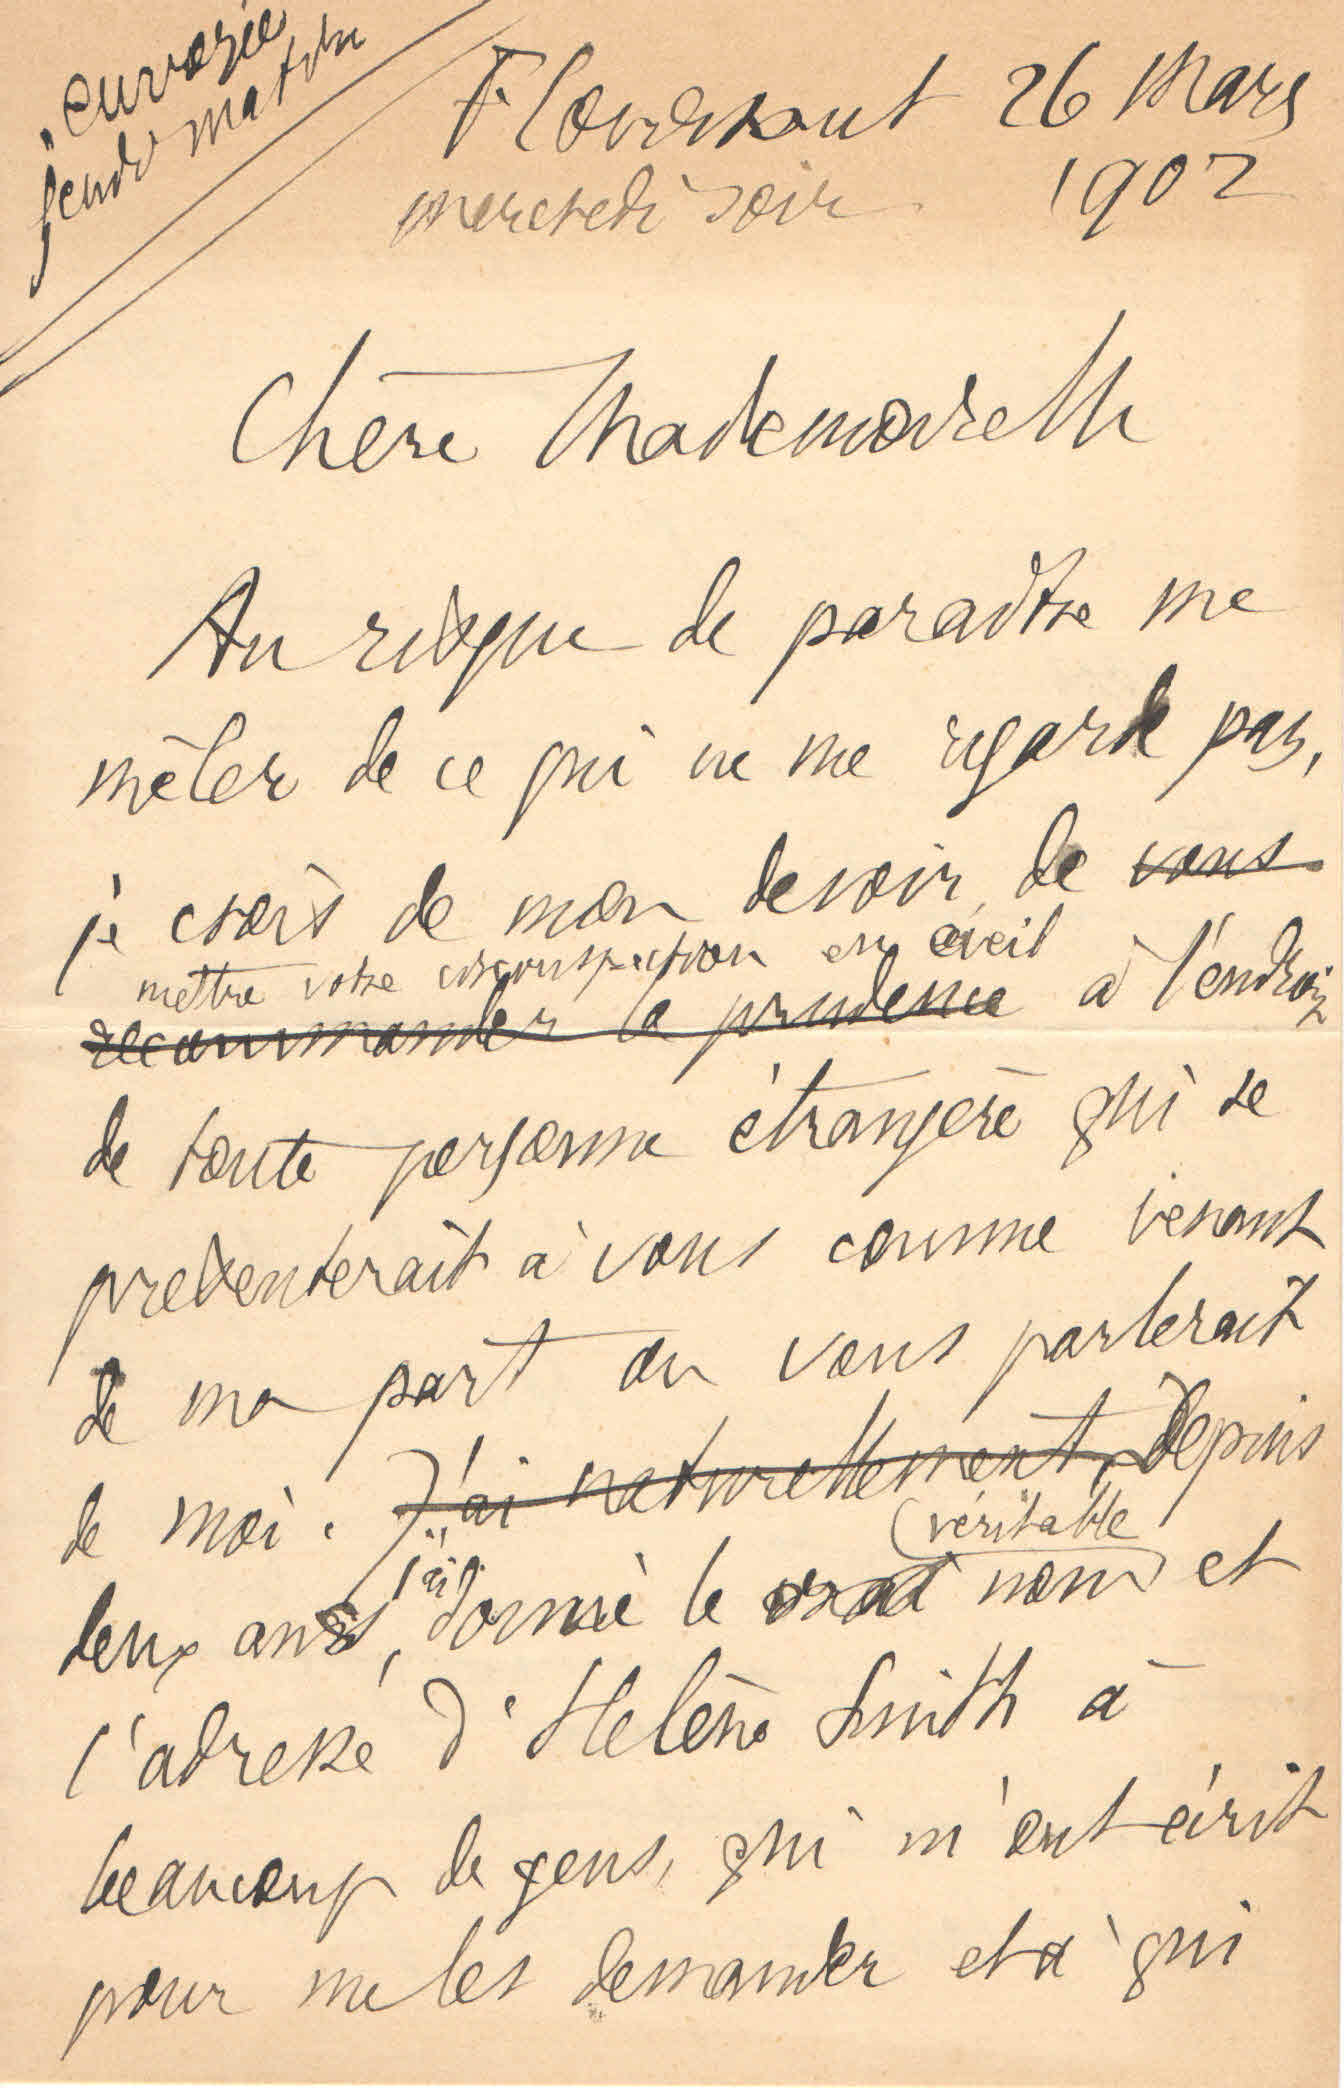 envoyée
jeudi matin
Florissant 26 Mars
mercredi soir 1902
Chère Mademoiselle
Au risque de paraître me
mêler de ce qui ne me regarde pas,
je crois de mon devoir de vous
mettre votre circonspection en éveil
recommander la prudence à l'endroit
de toute personne étrangère qui se
présenterait à vous comme venant
de ma part ou vous parlerait
de moi. J'ai naturellement, Depuis
(véritable
deux ans, j'ai donné le vrai nom) et
l'adresse d'Hélène Smith à
beaucoup de gens, qui m'ont écrit
pour me les demander et à qui